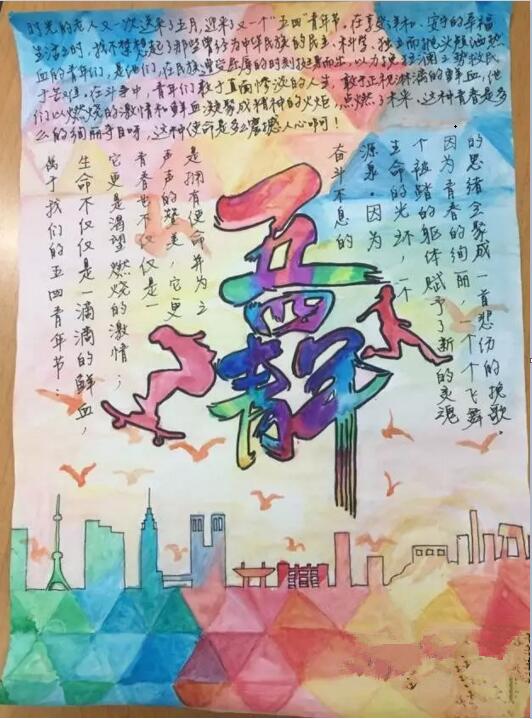 时光的老人又一次送来了五月，迎来了又一个"五四"青年节。在享受亲和、安宁的幸福
生活之时，我不禁想起了那些曾经为中华民族的民主、科学、独立而抛头颅洒热
血的青年们，是他们，在民族遭受屈辱的时刻挺身而出，以力挽狂澜之势救民
于苦难。在斗争中，青年们敢于直面惨淡的人生，敢于正视淋漓的鲜血，他
们以燃烧的激情和鲜血凝聚成精神的火炬，点燃了未来。这种青春是多
么的绚丽夺目呀，这种使命是多么震撼人心啊！
属于我们的五四青年节！
生命不仅仅是一滴滴的鲜血，
它更是渴望燃烧的激情；
青春也不仅仅是一
声声的赞美，它更
是拥有使命并为之
奋斗不息的
源泉。因为
生命的光环，一个
个被踏的躯体赋予了新的灵魂
因为青春的绚丽，一个个飞舞
的思绪会聚成一首悲伤的挽歌。
五四
青年